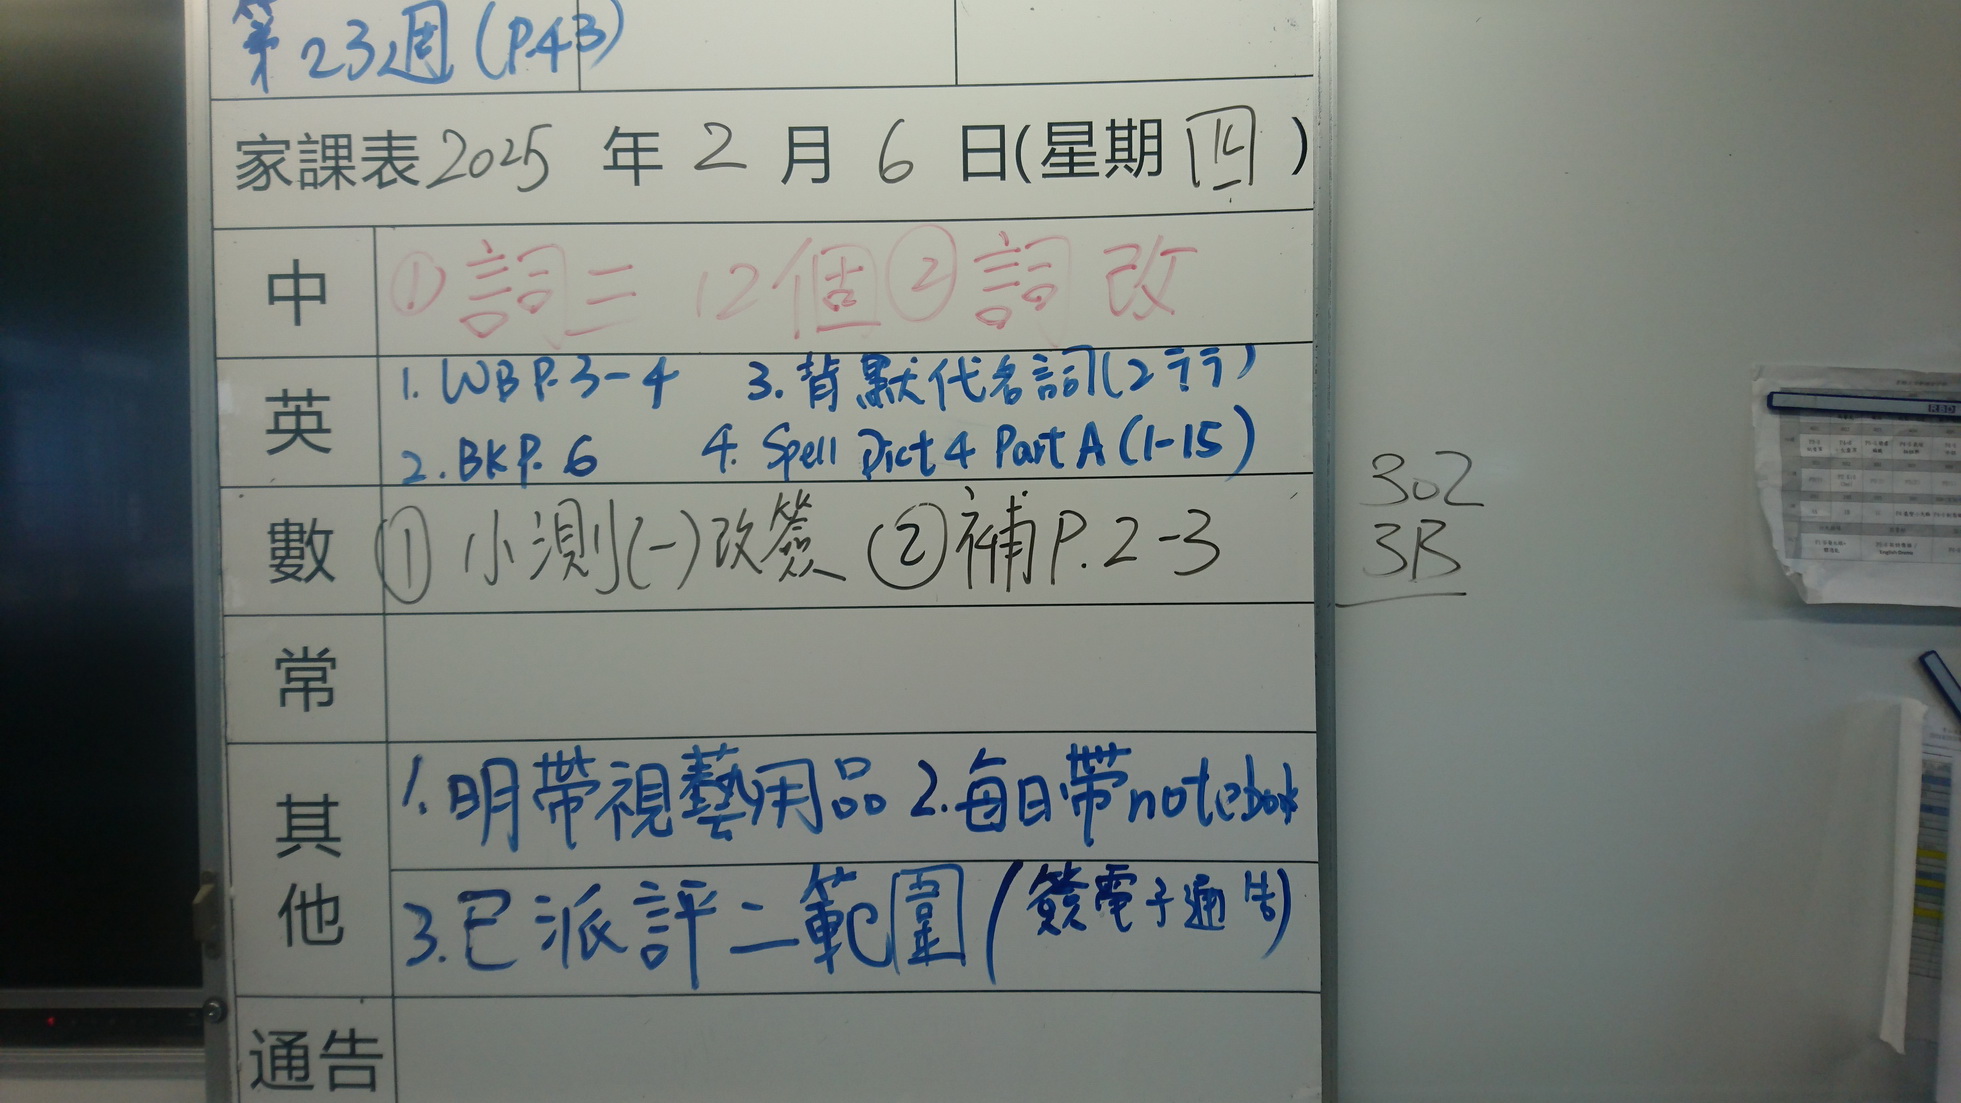 第23週(P.43)
家課表2025年2月6日(星期四)
中 ①詞三 12個②詞改
英 1. WB P.3-4 3.背默代名詞(2行)
2. BK P. 6 4. Spell Dict 4 Part A (1-15)
數 ①小測(一)改簽 ②補P.2-3
302
3B
常
其他 1.明帶視藝用品 2.每日帶notebook
3.已派評二範圍(簽電子通告)
通告